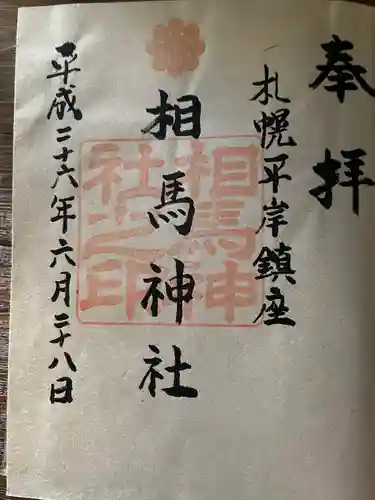 奉拝
札幌平岸鎮座
相馬神社
相馬神社之印
平成二十六年六月二十八日